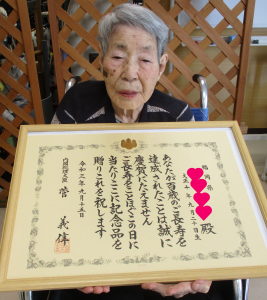 殿
あなたが百歳のご長寿を
達成されたことは誠に
慶賀にたえません
ご長寿をことほぐこの日に
当たりここに記念品を
贈りこれを祝します
令和三年九月十五日
内閣総理大臣 菅 義偉